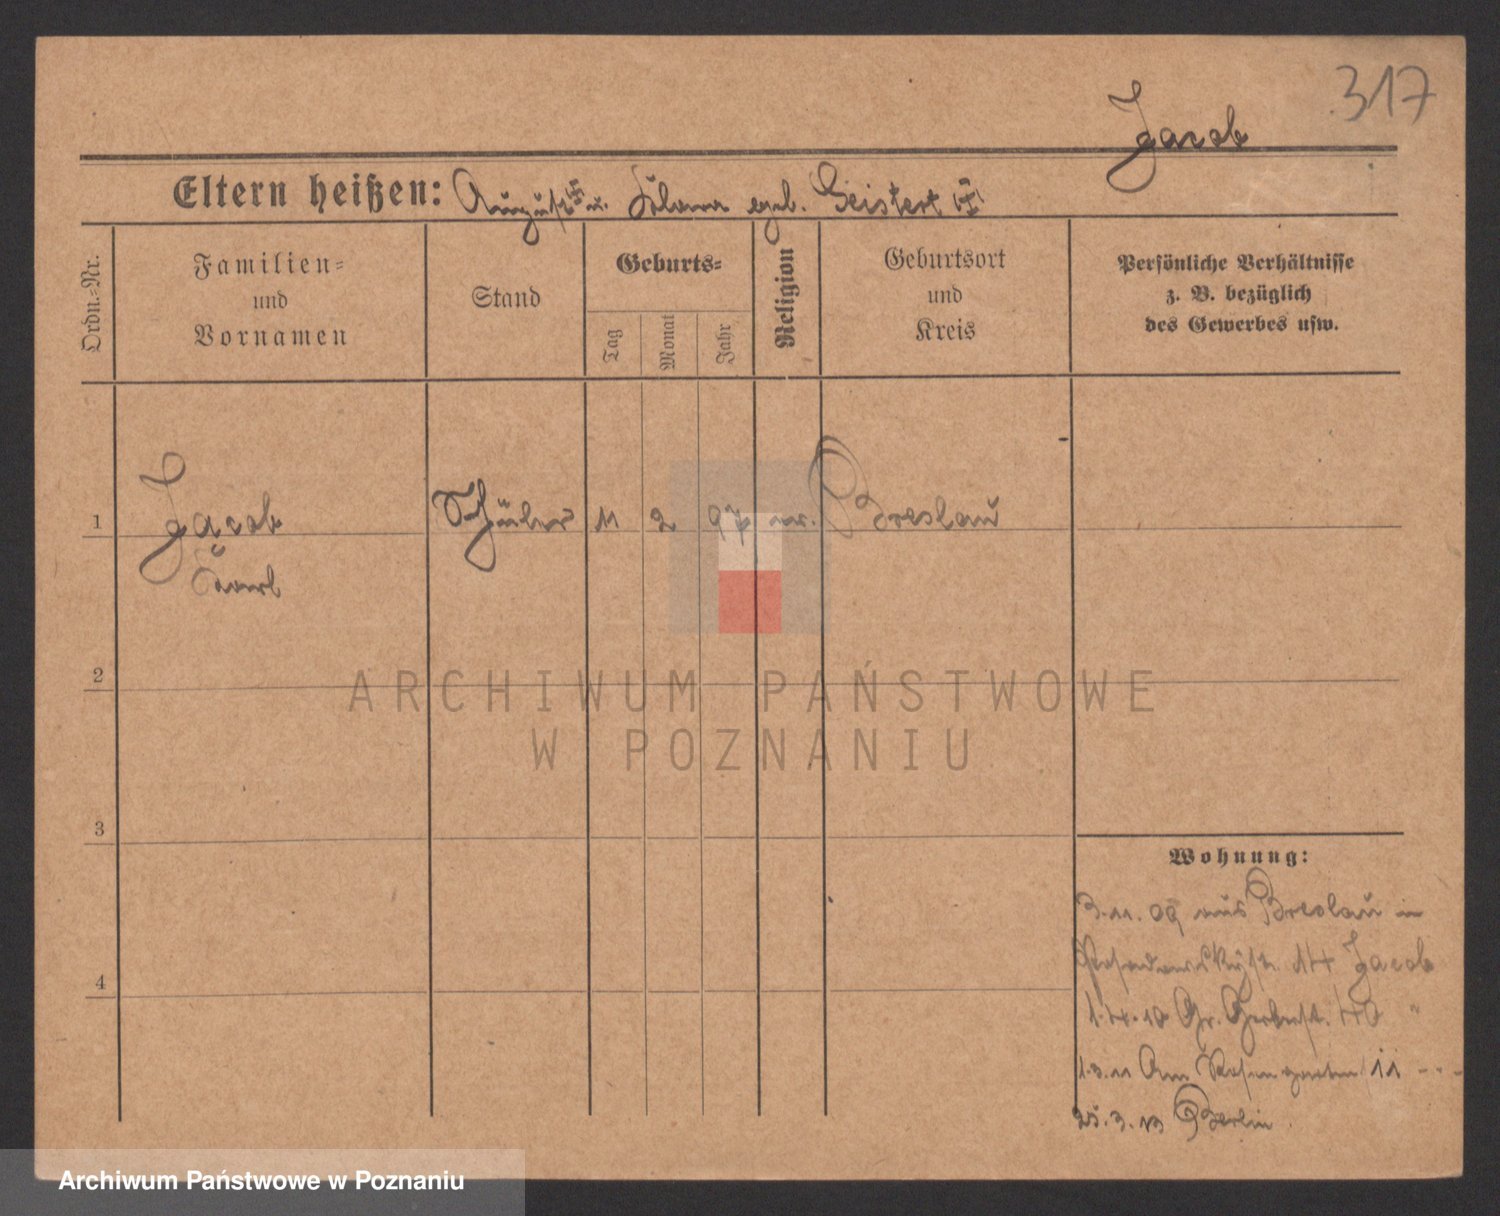 317
Jacob
Eltern heißen: August u. geb. Geistert
Ordn.-Nr.
Familien-
und
Vornamen
Stand
Geburts-
Tag
Monat
Jahr
Religion
Geburtsort
und
Kreis
Persönliche Verhältnisse
z. B. bezüglich
des Gewerbes usw.
1 Jacob Schüler 11 2 97 ev. Breslau
Karl
2
3
4
Wohnung:
3.11.09 aus Breslau in
Posadowskystr. 14 Jacob
1.4.10 Gr. Gerberst. 40 "
1.3.11 Am Rosengarten 11 - " -
25.3.13 Berlin.
ARCHIWUM PAŃSTWOWE
W POZNANIU
Archiwum Państwowe w Poznaniu